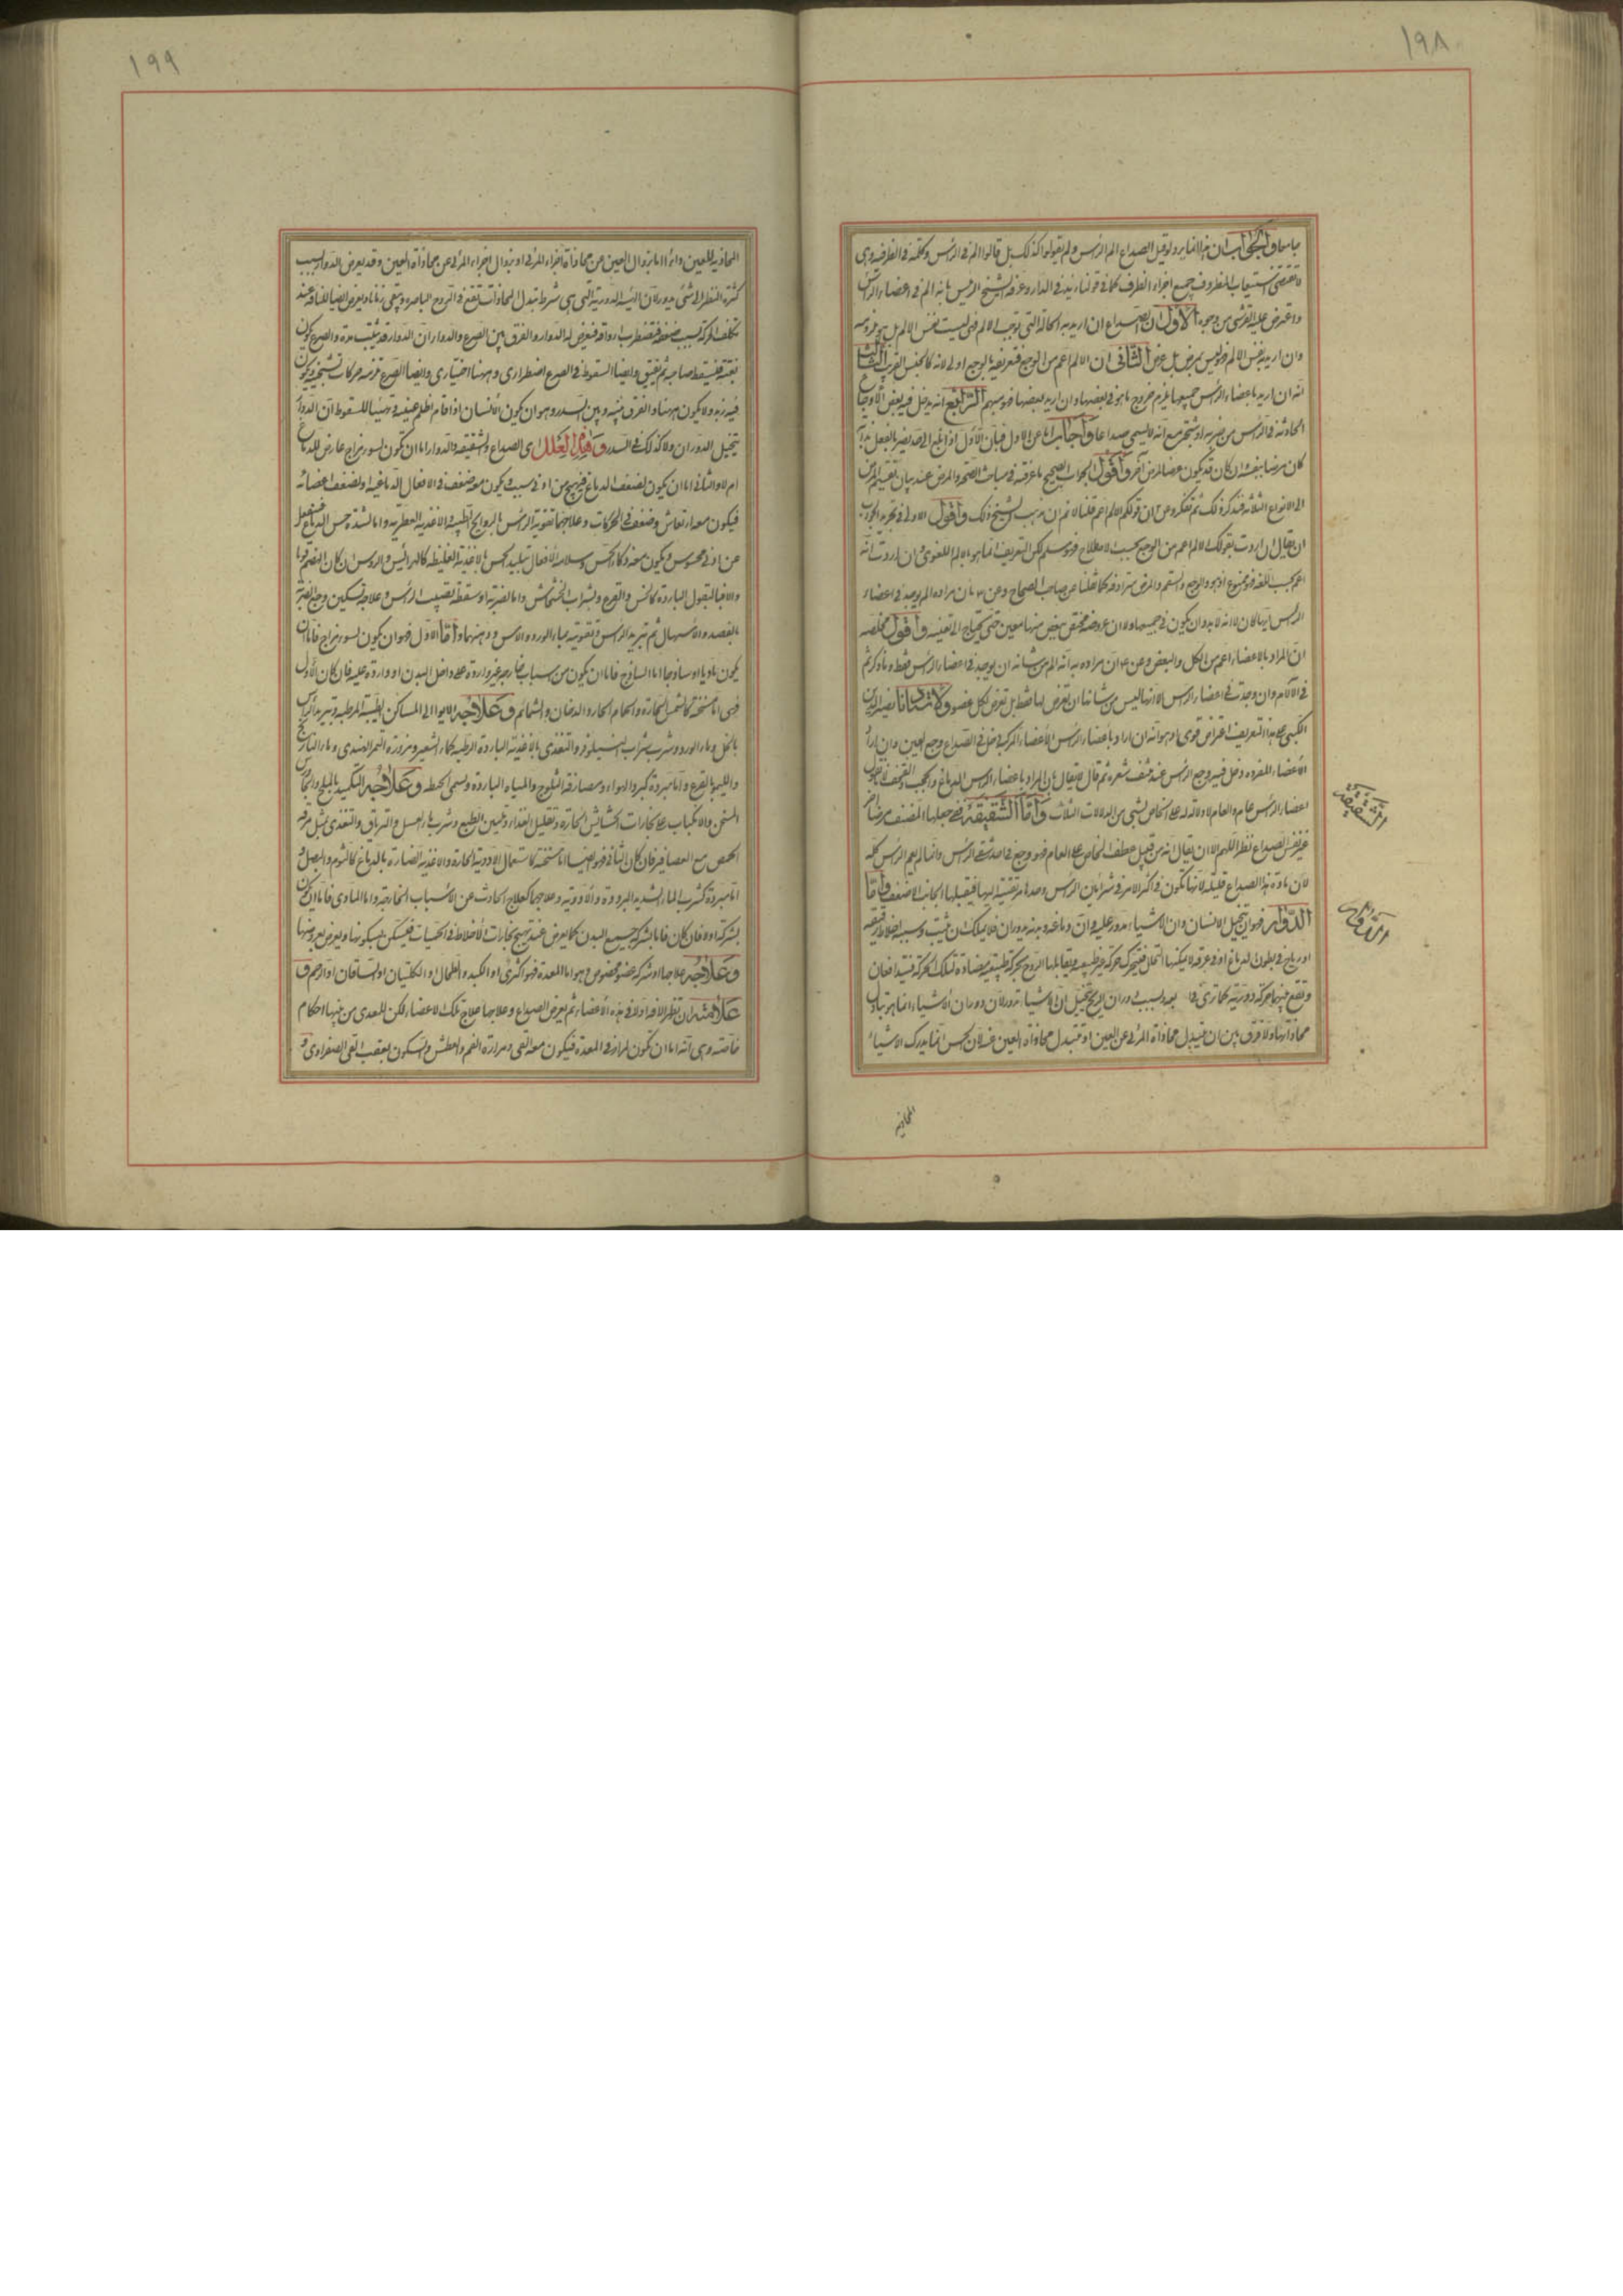 ١٩٨
جامعا والجواب ان هذا انما يرد لو قيل الصداع الم الرأس ولم يقولوا كذلك بل قالوا الم في الرأس وكلمة في الظرفية وهي
لا تقتضي استيعاب المظروف جميع اجزاء الظرف كما في قولنا زيد في الدار وعرفه الشيخ الرئيس بانه الم في اعضاء الرأس
واعترض عليه القرشي من وجوه الاول ان الصداع ان اريد به الحالة التي توجب الالم فهي ليست نفس الالم بل
وان اريد به نفس الالم فهو ليس بمرض بل عرض الثاني ان الالم اعم من الوجع فتعريفه بالوجع اولى لانه كالجنس القريب الثالث
انه ان اريد باعضاء الرأس جميعها يلزم خروج ما هو في بعضها وان اريد بعضها فهو مبهم الرابع انه يدخل فيه بعض الاوجاع
الحادثة في الرأس من ضربة او شجة مع انه لا يسمى صداعا واجاب اما عن الاول فبان الاول
كان مرضا بنفسه وان كان قد يكون عرضا لمرض آخر واقول الجواب الصحيح ما عرفته في مباحث الصحة والمرض عند بيان تقسيم المرض
الى الانواع الثلاثة فتذكر ذلك ثم تفكر وعن ان قولكم الالم اعم قلنا لا نم ان مذهب الشيخ ذلك واقول الاولى في تحرير الجواب
ان يقال ان اردت بقولك الالم اعم من الوجع بحسب الاصطلاح فهو مسلم لكن التعريف انما هو بالالم اللغوي وان اردت انه
اعم بحسب اللغة فهو ممنوع اذ هو والوجع والسقم والمرض مترادفة كما نقلنا عن صاحب الصحاح وعن بان مراده الم يوجد في اعضاء
الرأس ايها كان لا انه لا بد وان يكون في جميعها ولا ان عروضه مختص ببعض منها معين حتى يحتاج الى تعيينه واقول ملخصه
ان المراد بالاعضاء اعم من الكل والبعض وعن ان مراده به انه الم من شانه ان يوجد في اعضاء الرأس فقط وما ذكرتم
في الآلام وان وجدت في اعضاء الرأس الا انها ليس من شانها ان تعرض لها فقط بل تعرض لكل عضو ولاستاذنا نصير الدين
الكشي على هذا التعريف اعتراض قوي وهو انه ان اراد باعضاء الرأس الاعضاء المركبة دخل في الصداع وجع العين وان اراد
الاعضاء المفردة دخل فيه وجع الرأس عند نتف شعره ثم قال لا يقال ان المراد باعضاء الرأس الدماغ والحجب والقحف
اعضاء الرأس عام والعام لا دلالة له على الخاص بشيء من الدلالات الثلاث واما الشقيقة فقد جعلها المصنف مرضا
غير نفس الصداع نظرا اللهم الا ان يقال انه من قبيل عطف الخاص على العام فهو وجع في احد شقي الرأس وانما لم يعم الرأس كله
لان مادة هذا الصداع قليلة لانها تكون في اكثر الامر في شرايين الرأس وحدها مرتقية اليها فيقبلها الجانب الاضعف واما
الدوار فهو ان يتخيل الانسان وان الاشياء تدور عليه وان دماغه وبدنه يدوران فلا يملك ان يثبت وسببه اخلاط رقيقة
او رياح في بطون الدماغ او في عروقه لا يمكنها التحلل فتتحرك حركة غير طبيعية ويقابلها الروح بحركة طبيعية مضادة لتلك الحركة فتتدافعان
وتقع منهما حركة دورية كما ترى في بعد وبسبب دوران الريح يتخيل ان الاشياء تدور لان دوران الاشياء انما هو تبدل
محاذاتها ولا فرق بين ان يتبدل محاذاة المرئي عن العين او يتبدل محاذاة العين عنه لان الحس انما يدرك الاشياء
الشقيقة
الدوار
المحاذية
١٩٩
المحاذية للعين وانه اما بزوال العين عن محاذاة اجزاء المرئي او بزوال اجزاء المرئي عن محاذاة العين وقد يعرض الدوار بسبب
كثرة النظر الى شيء يدور لان الهيئة الدورية التي هي شرط تبدل المحاذات تقع في الروح الباصرة وتبقى زمانا ويعرض ايضا للضعفاء عند
تكلف الحركة بسبب ضعفه فتضطرب ارواحه فيعرض له الدوار والفرق بين الصرع والدوار ان الدوار قد يثبت مدة والصرع يكون
بغتة فيسقط صاحبه ثم يفيق وايضا السقوط في الصرع اضطراري وههنا اختياري وايضا الصرع تلزمه حركات تشنجية ويكون
فيه زبد ولا يكون ههنا والفرق بينه وبين السدر وهو ان يكون الانسان اذا قام اظلم عينيه وتهيأ للسقوط ان الدوار
يتخيل الدوران ولا كذلك في السدر وهذه العلل اي الصداع والشقيقة والدوار اما ان تكون لسوء مزاج عارض للدماغ
ام لا والثاني اما ان يكون لضعف الدماغ فيهيج من ادنى سبب ويكون معه ضعف في الافعال الدماغية ولضعف اعضائه
فيكون معه ارتعاش وضعف في الحركات وعلاجها تقوية الرأس بالروايح الطيبة والاغذية العطرية واما لشدة حس الدماغ فينفعل
عن ادنى محسوس ويكون معه ذكاء الحس وسلامة الافعال تبليد الحس بالاغذية الغليظة كالهرائيس والروس ان كان الهضم قويا
والا فبالبقول الباردة كالخس والقرع وبشراب الخشخاش واما لضربة او سقطة تصيب الرأس وعلاجه تسكين وجع الضربة
بالفصد والاسهال ثم تبريد الرأس وتقويته بماء الورد والآس ودهنهما واما الاول فهو ان يكون لسوء مزاج فاما ان
يكون ماديا او ساذجا اما الساذج فاما ان يكون من اسباب خارجية غير واردة على داخل البدن او واردة عليه فان كان الاول
فهي اما مسخنة كالشمس الحارة والحمام الحار والدخان والشمائم وعلاجه الايواء الى المساكن الطيبة المرطبة وتبريد الرأس
بالخل وماء الورد وشرب شراب النيلوفر والتغذي بالاغذية الباردة الرطبة كماء الشعير ومزورة التمر الهندي وماء النارنج
والليمو بالقرع واما مبردة كبرد الهواء ومصادفة الثلوج والمياه الباردة ويسمى الخطة وعلاجه التكميد بالملح والجاورس
المسخن والانكباب على بخارات الحشايش الحارة وتقليل الغذاء وتليين الطبع وشرب ماء العسل والترياق والتغذي بمثل مرقة
الحمص مع العصافير فان كان الثاني فهو ايضا اما مسخنة كاستعمال الادوية الحارة والاغذية الضارة بالدماغ كالثوم والبصل
اما مبردة كشرب الماء الشديد البرودة والادوية وعلاجها كعلاج الحادث عن الاسباب الخارجية واما المادي فاما ان يكون
بشركة اولا فان كان فاما بشركة جميع البدن كما يعرض عند تهيج بخارات الاخلاط في الحميات فيسكن بسكونها ويعرض بعروضها
وعلاجه علاجها او شركة عضو مخصوص وهو اما المعدة فهو اكثري او الكبد والطحال والكليتان او الساقان او الرحم و
علامته ان تظهر الآفة اولا في هذه الاعضاء ثم يعرض الصداع وعلاجها علاج تلك الاعضاء لكن للمعدي من بينها احكام
خاصة وهي انه اما ان تكون لمرار في المعدة فيكون معه القيء ومرارة الفم والعطش ويسكون بعقب القيء الصفراوي و